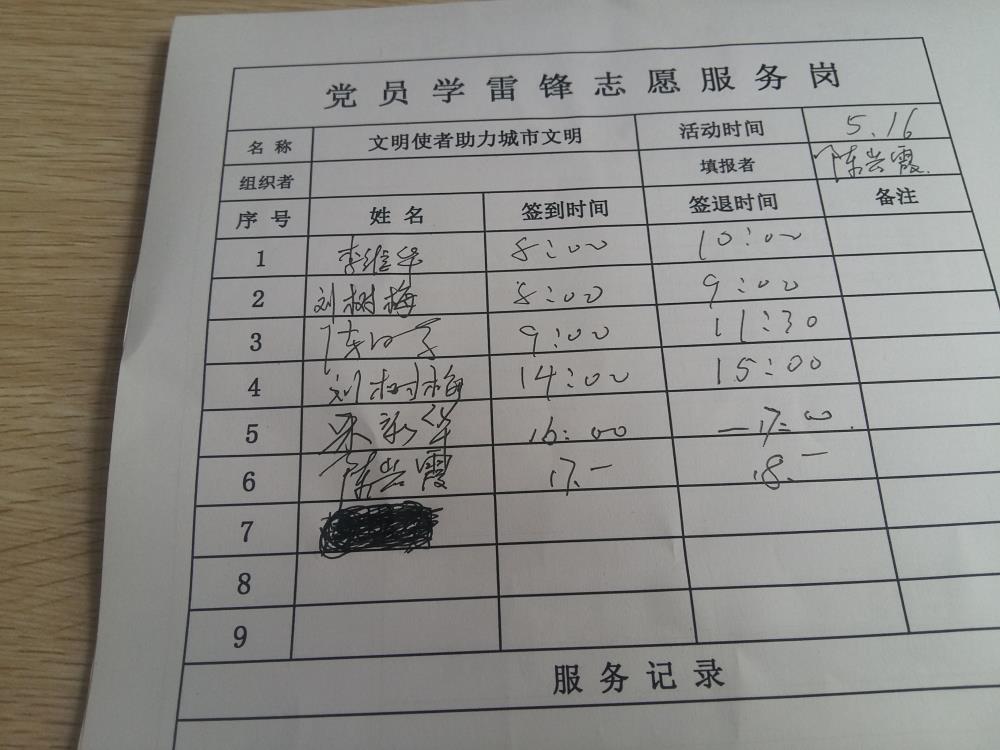 党员学雷锋志愿服务岗
名称 文明使者助力城市文明 活动时间 5.16
组织者 填报者 陈兴霞
序号 姓名 签到时间 签退时间 备注
1 李维华 8:00 10:00
2 刘树梅 8:00 9:00
3 9:00 11:30
4 刘树梅 14:00 15:00
5 新华 16:00 —17:00.
6 陈兴霞 17.— 18.—
7
8
9
服务记录